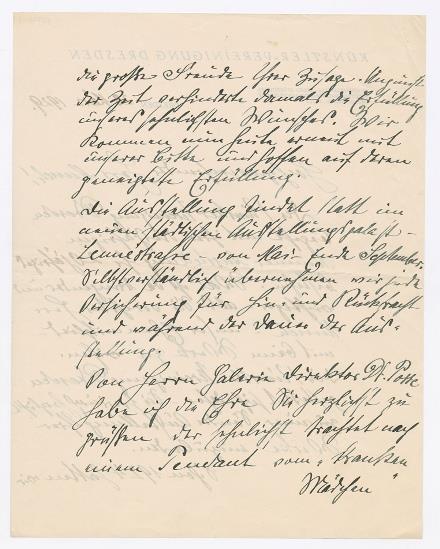 KÜNSTLER-VEREINIGUNG DRESDEN
die große Freude Ihrer Zusage. Ungunst
der Zeit verhinderte damals die Erfüllung
unseres sehnlichsten Wunsches. Wir
kommen nun heute erneut mit
unserer Bitte und hoffen auf deren
geneigtete Erfüllung.
Die Ausstellung findet statt im
neuen städtischen Ausstellungspalast -
Lennéstrasse - von Mai - Ende September.
Selbstverständlich übernehmen wir jede
Versicherung für Hin- und Rückfracht
und während der Dauer der Aus-
stellung.
Von Herrn Galerie Direktor Dr. Posse
habe ich die Ehre Sie herzlichst zu
grüßen der sehnlichst trachtet nach
einem Pendant vom "Kranken
Mädchen"